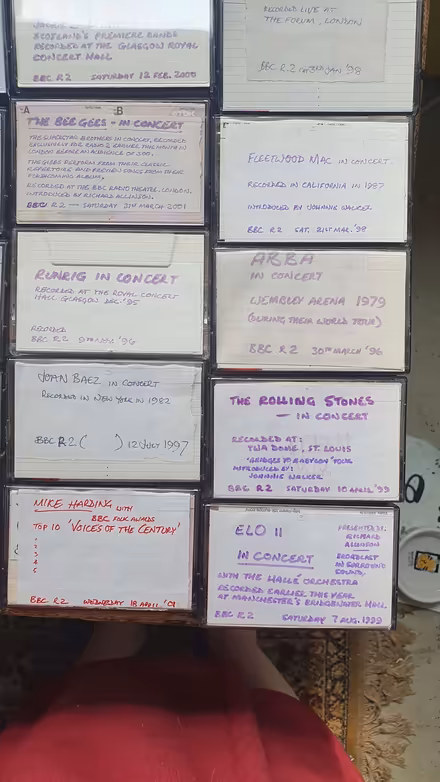 SCOTLAND'S PREMIERE BANDS
RECORDED AT THE GLASGOW ROYAL
CONCERT HALL
BBC R2 SATURDAY 12 FEB. 2000
RECORDED LIVE AT
THE FORUM, LONDON
BBC R2 JAN '98
A B
THE BEE GEES - IN CONCERT
THE SUPERSTAR BROTHERS IN CONCERT, RECORDED
EXCLUSIVELY FOR RADIO 2 EARLIER THIS MONTH IN
LONDON BEFORE AN AUDIENCE OF
THE GEES PERFORM FROM THEIR CLASSIC
REPERTOIRE AND PREVIEW SONGS FROM THEIR
FORTHCOMING ALBUM.
RECORDED AT THE BBC RADIO THEATRE, LONDON.
INTRODUCED BY RICHARD ALLINSON.
BBC R2 — SATURDAY 31ST MARCH 2001
FLEETWOOD MAC IN CONCERT
RECORDED IN CALIFORNIA IN 1987
INTRODUCED BY JOHNNIE WALKER
BBC R2 SAT. 21ST MAR. '98
RUNRIG IN CONCERT
RECORDED AT THE ROYAL CONCERT
HALL GLASGOW DEC. '95
RECORDED
BBC R2 '96
ABBA
IN CONCERT
WEMBLEY ARENA 1979
(DURING THEIR WORLD TOUR)
BBC R2 30TH MARCH '96
JOAN BAEZ IN CONCERT
RECORDED IN NEW YORK IN 1982
BBC R2 ( ) 12 JULY 1997
THE ROLLING STONES
— IN CONCERT
RECORDED AT:
TWA DOME, ST. LOUIS
'BRIDGES TO BABYLON' TOUR
INTRODUCED BY:
JOHNNIE WALKER
BBC R2 SATURDAY 10 APRIL '99
MIKE HARDING WITH
BBC FOLK AWARDS
TOP 10 'VOICES OF THE CENTURY'
1
2
3
4
5
BBC R2 WEDNESDAY 18 APRIL '01
ELO II
IN CONCERT
PRESENTED BY
RICHARD
ALLINSON
BROADCAST
IN SURROUND
SOUND
WITH THE HALLÉ ORCHESTRA
RECORDED EARLIER THIS YEAR
AT MANCHESTER'S BRIDGEWATER HALL
BBC R2 SATURDAY 7 AUG. 1999